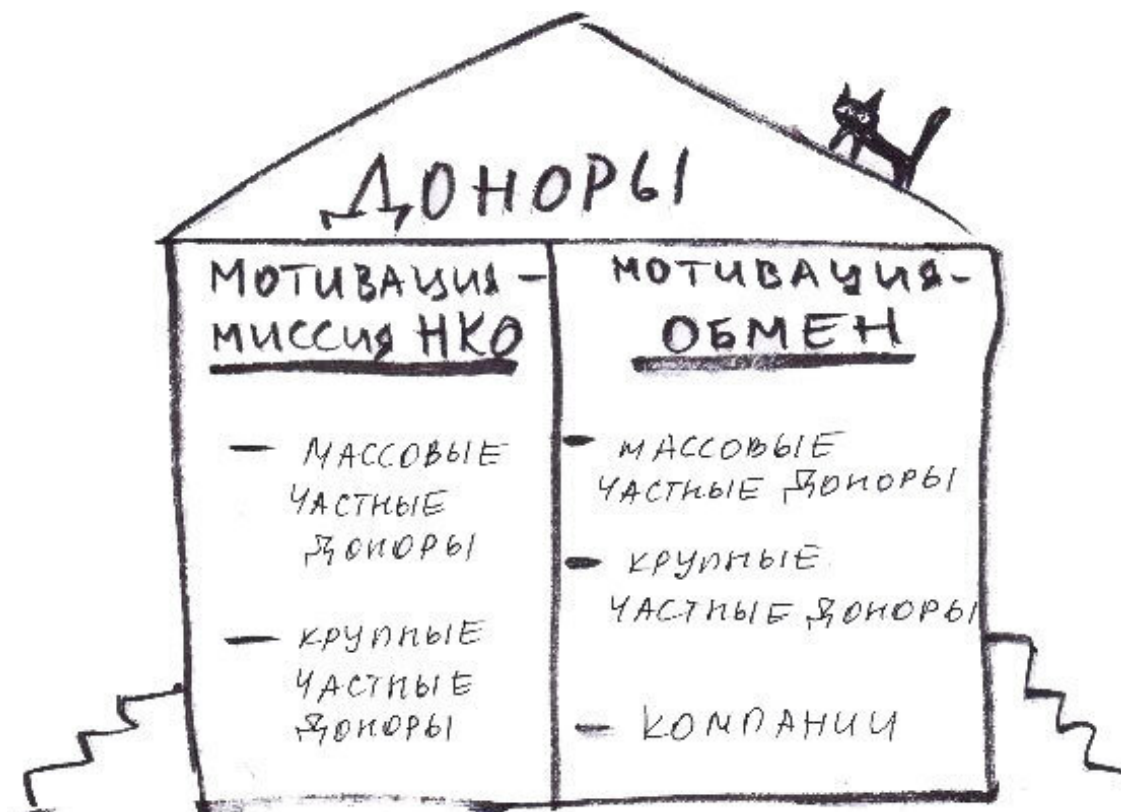 ДОНОРЫ
МОТИВАЦИЯ -
МИССИЯ НКО
— МАССОВЫЕ
ЧАСТНЫЕ
ДОНОРЫ
— КРУПНЫЕ
ЧАСТНЫЕ
ДОНОРЫ
МОТИВАЦИЯ-
ОБМЕН
- МАССОВЫЕ
ЧАСТНЫЕ ДОНОРЫ
- КРУПНЫЕ
ЧАСТНЫЕ ДОНОРЫ
- КОМПАНИИ